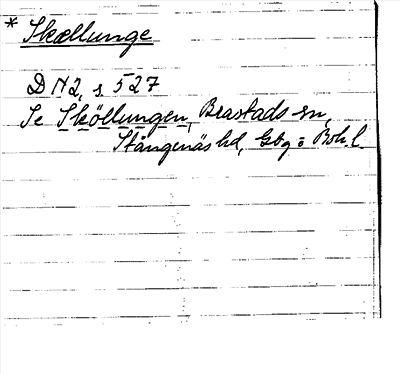 * Skællunge
D N 2, s. 527
Se Sköllungen, Brastads sn,
Stångenäs hd, Gbg o Boh. l.